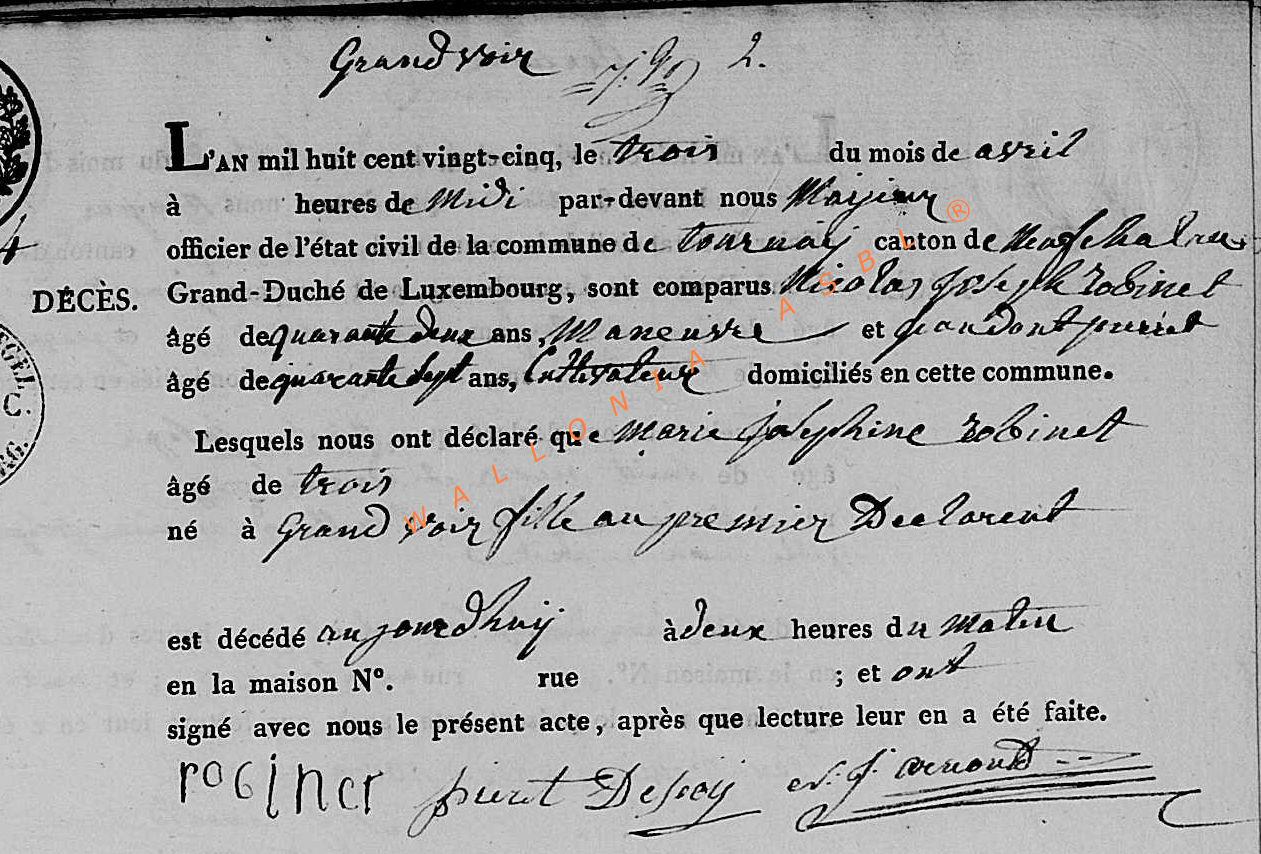 Grandvoir 2.
L'AN mil huit cent vingt-cinq, le trois du mois de avril
à heures de Midi par-devant nous Mayeur
officier de l'état civil de la commune de tournay canton de Neufchateau
DÉCÈS. Grand-Duché de Luxembourg, sont comparus Nicolas Joseph robinet
âgé de quarante deux ans, Maneuvre et
âgé de quarante sept ans, Cultivateur domiciliés en cette commune.
Lesquels nous ont déclaré que Marie josephine robinet
âgé de trois
né à Grand voir fille au premier Declarent
est décédé aujourdhuy à deux heures du matin
en la maison N°. rue ; et ont
signé avec nous le présent acte, après que lecture leur en a été faite.
robinet
WALLONIA ASBL ®